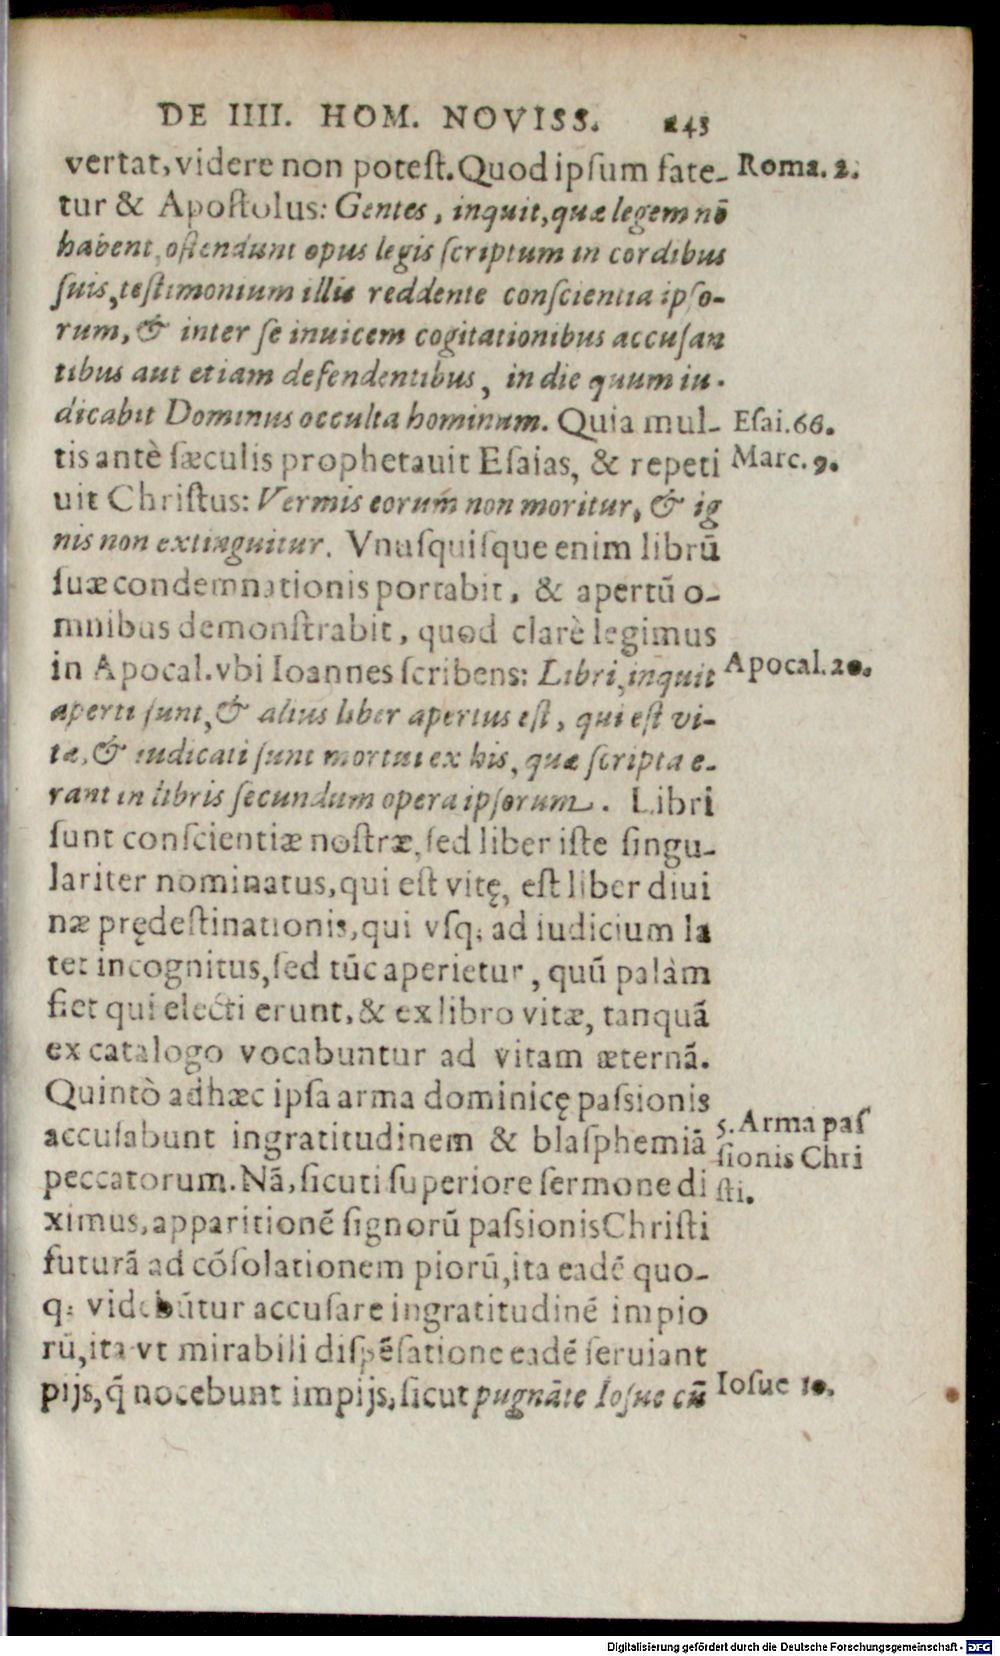 DE IIII. HOM. NOVISS. 243
vertat, videre non poteſt. Quod ipſum fate-
Roma. 2.
tur & Apoſtolus: Gentes, inquit, quæ legem nō
habent, oſtendunt opus legis ſcriptum in cordibus
ſuis, teſtimonium illis reddente conſcientia ipſo-
rum, & inter ſe inuicem cogitationibus accuſan
tibus aut etiam defendentibus, in die quum iu-
dicabit Dominus occulta hominum. Quia mul-
Eſai. 66.
tis antè ſæculis prophetauit Eſaias, & repeti
Marc. 9.
uit Chriſtus: Vermis eorum non moritur, & ig
nis non extinguitur. Vnuſquiſque enim librū
ſuæ condemnationis portabit, & apertū o-
mnibus demonſtrabit, quod clarè legimus
in Apocal. vbi Ioannes ſcribens: Libri, inquit
Apocal. 20.
aperti ſunt, & alius liber apertus eſt, qui eſt vi-
tæ, & iudicati ſunt mortui ex his, quæ ſcripta e-
rant in libris ſecundum opera ipſorum. Libri
ſunt conſcientiæ noſtræ, ſed liber iſte ſingu-
lariter nominatus, qui eſt vitę, eſt liber diui
næ prędeſtinationis, qui vſq; ad iudicium la
tet incognitus, ſed tūc aperietur, quū palàm
fiet qui electi erunt, & ex libro vitæ, tanquā
ex catalogo vocabuntur ad vitam æternā.
Quintò adhæc ipſa arma dominicę paſsionis
5. Arma paſ
accuſabunt ingratitudinem & blaſphemiā
ſionis Chri
peccatorum. Nā, ſicuti ſuperiore ſermone di
ſti.
ximus, apparitionē ſignorū paſsionis Chriſti
futurā ad cōſolationem piorū, ita eadē quo-
q; videbūtur accuſare ingratitudinē impio
rū, ita vt mirabili diſpēſatione eadē ſeruiant
pijs, q̄ nocebunt impijs, ſicut pugnāte Ioſue cū
Ioſue 10.
Digitalisierung gefördert durch die Deutsche Forschungsgemeinschaft - DFG